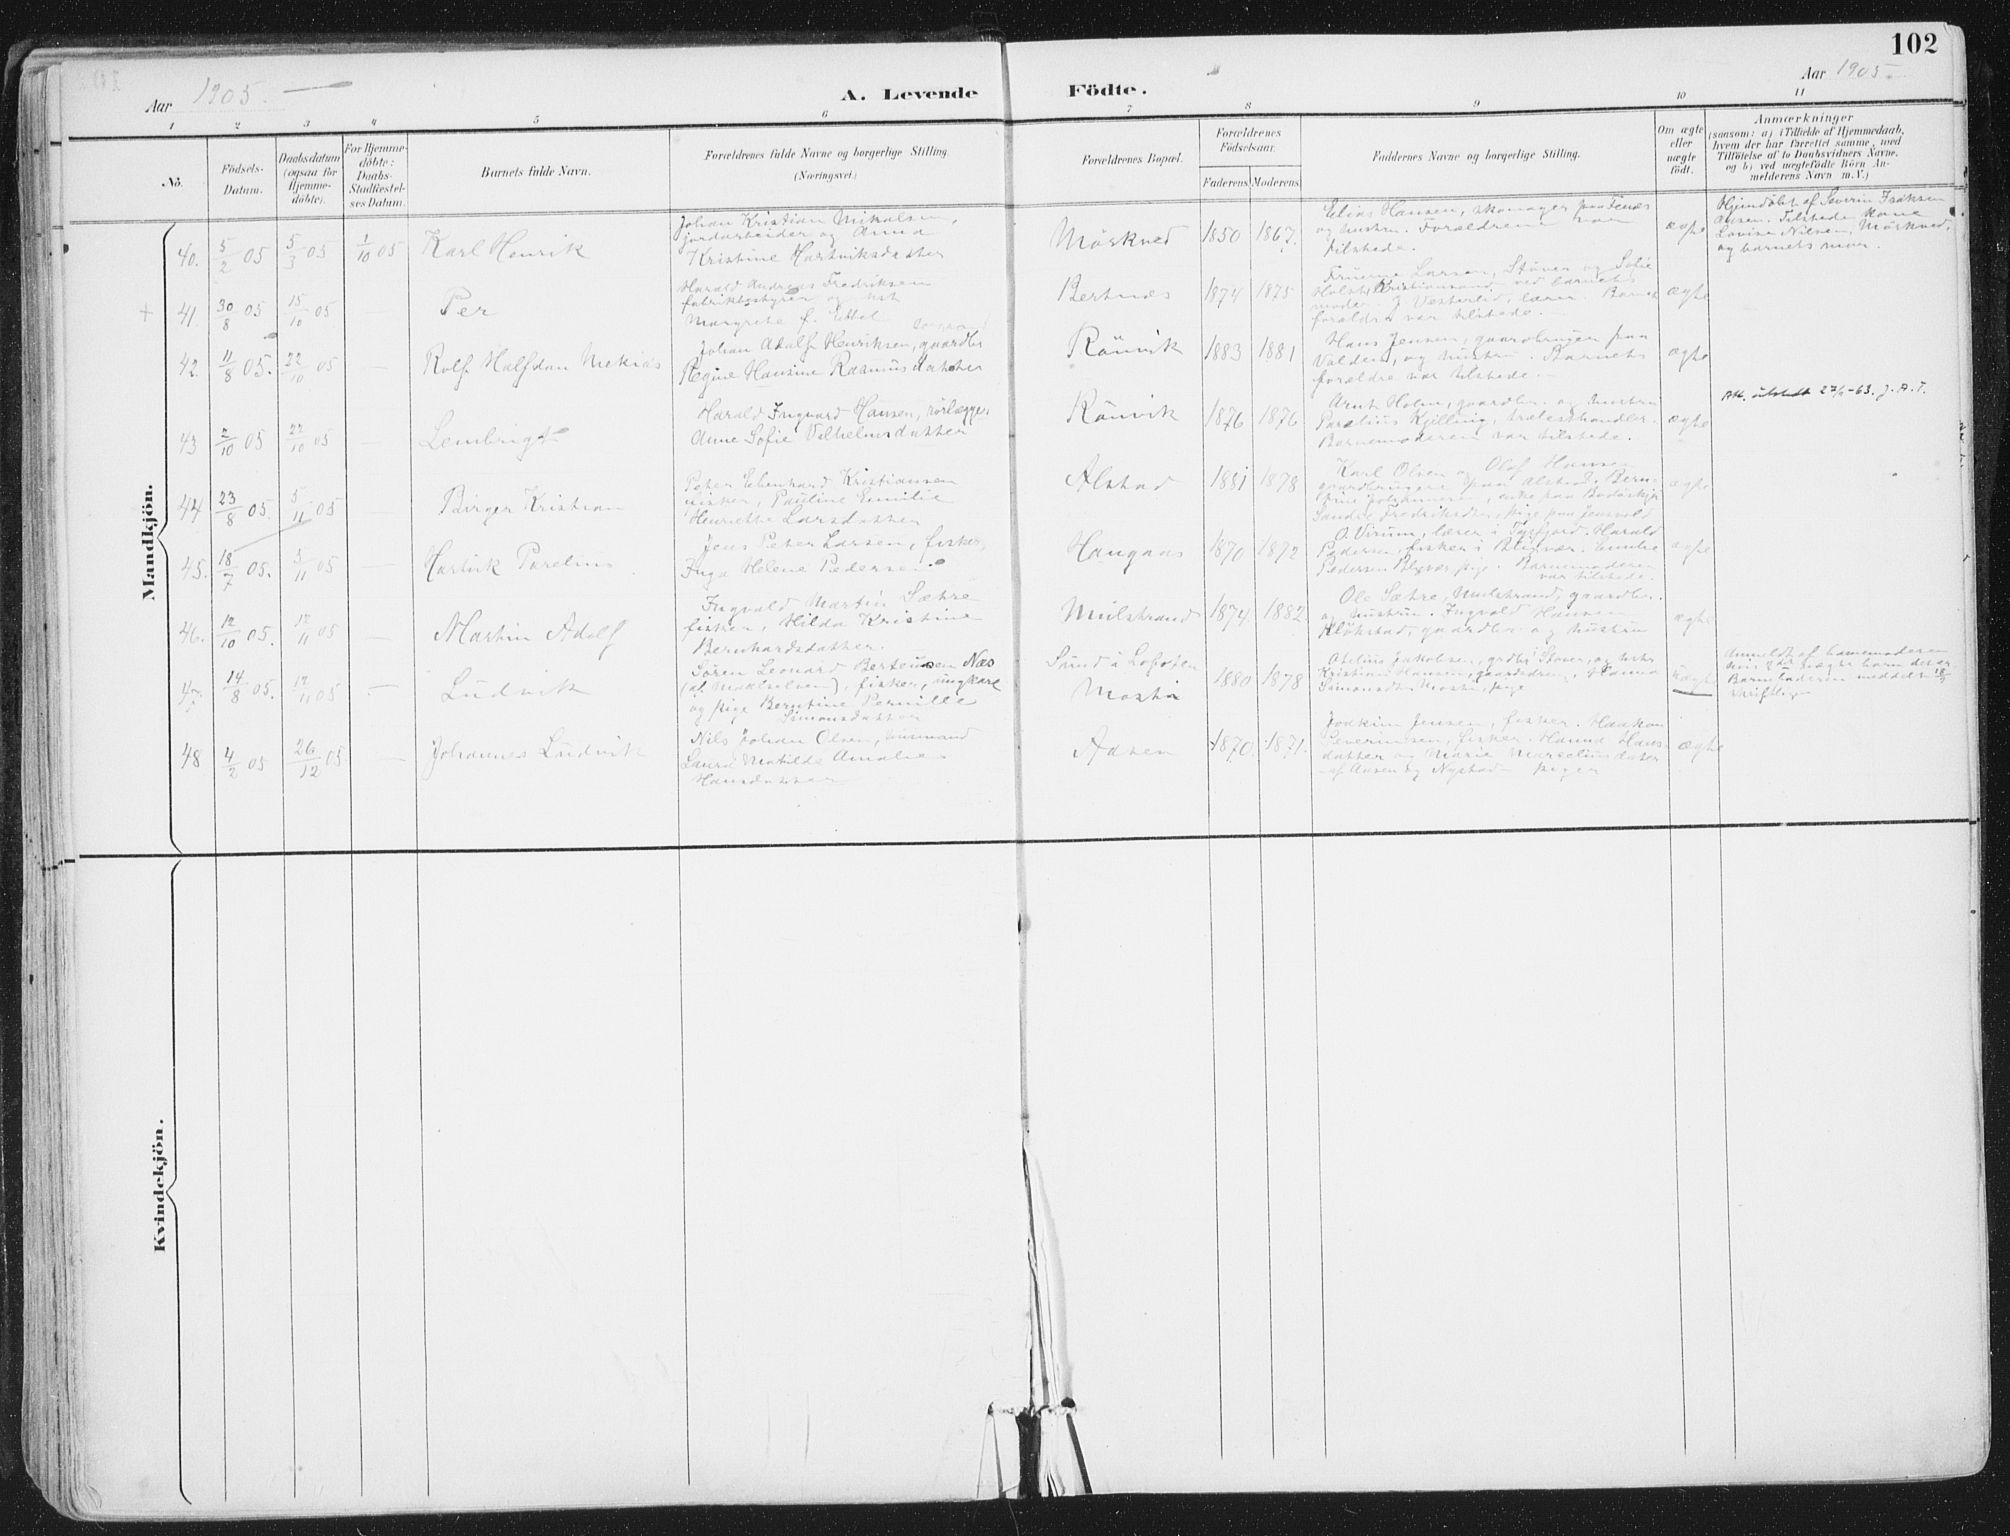 102
Aar 1905.
A. Levende Födte.
Aar 1905.
1 2 3 4 5 6 7 8 9 10 11
No.
Födsels-
Datum.
Daabsdatum
(ogsaa for
Hjemme-
döbte).
For Hjemme-
döbte:
Daabs-
Stadfæstel-
ses Datum.
Barnets fulde Navn.
Forældrenes fulde Navne og borgerlige Stilling.
(Næringsvei.)
Forældrenes Bopæl.
Forældrenes
Födselsaar.
Faderens Moderens
Faddernes Navne og borgerlige Stilling.
Om ægte
eller
uægte
födt.
Anmærkninger
(saasom: a) i Tilfælde af Hjemmedaab,
hvem der har forrettet samme, med
Tilföielse af to Daabsvidners Navne,
og b) ved uægtefödte Börn An-
melderens Navn m.V.)
Mandkjön.
40. 5/2 05 5/3 05 1/10 05 Karl Henrik
Johan Kristian Nikolsen,
jordarbeider og Anna
Kristine Hartviksdatter
Mörkved 1850 1867.
Elias Hansen, skomager paa Fenes
og hustru. Forældrene var
tilstede.
ægte
Hjemdöbt af Severin
Tilstede kone
Lovise Nilsen, Mörkved,
og barnets mor.
41. 30/8 05 15/10 05 Per
Harald Andreas Fredriksen
fabrikbestyrer og hst
Margrethe f.
Bertnes 1874 1875
Fruerne Larsen, Stöver og Sofie
Holst, Kristiansand ved barnets
moder. J Vesterlid, lærer. Barnets
forældre var tilstede.
ægte
42. 11/8 05. 22/10 05 — Rolf Halfdan Mekias
Johan Adolf Henriksen, gaardbr
Regine Hansine Rasmusdatter
Rönvik 1883 1881
Hans Jensen, gaardbruger paa
Valden, og hustru. Barnets
forældre var tilstede.
ægte
43 2/10 05 22/10 05 — Lembrigt
Harald Ingvard Hansen, rörlægger
Anne Sofie Vilhelmsdatter
Rönvik 1876 1876
Arnt Holm, gaardbr. og hustru
Parelius Kjelling, trælasthandler.
Barnemoderen var tilstede.
ægte
Att. utstedt 27/1-63. J.A.T.
44 23/8 05. 5/11 05 Birger Kristian
Peter Edenhard Kristiansen
fisker, Pauline Emilie
Henriette Larsdatter
Alstad 1881 1878
Karl Olsen og Olaf Hansen
gaardbrugere paa Alstad.
Sandra Fredriksdtr, pige paa Jensvold
ægte
45. 18/7 05. 5/11 05 — Hartvik Parelius
Jens Peter Larsen, fisker,
Inga Helene Pedersen.
Haugaas 1870 1872
O. Virum, lærer i Tysfjord. Harald
Pedersen, fisker i Bligvær. Emilie
Pedersen Bligvær pige. Barnemoderen
var tilstede.
ægte
46. 12/10 05. 12/11 05 — Martin Adolf
Ingvald Martin Sæthre
fisker, Hilda Kristine
Bernhardsdatter.
Mulstrand 1874 1882.
Ole Sæthre, Mulstrand, gaardbr.
og hustru. Ingvald Hansen
Klökstad, gaardbr. og hustru
ægte
47. 14/8 05. 12/11 05 — Ludvik
Sören Leonard Berteussen Næs
(af Maalselven), fisker, ungkarl
og pige Berntine Pernille
Simonsdatter
Sund i Lofoten
Mostia 1880 1878
Jakobsen, grdbr Stöver, og hstr
Kristian Hansen, gaardsdreng, Hanna
Simonsdtr Mostia, pige
uægte
Anmeldt af barnemoderen
uægte barn
Barnefaderen meddelt
skriftlig
48 4/2 05 26/12 05 — Johannes Ludvik
Nils Johan Olsen, husmand
Laura Matilde Amalie
Hansdatter
Aasen 1870. 1871.
Joakim Jensen, fisker. Haakon
Severinsen, fisker. Hanna Hans-
datter og Marie Marseliusdatter
af Aasen og Nystad piger
ægte
Kvindekjön.